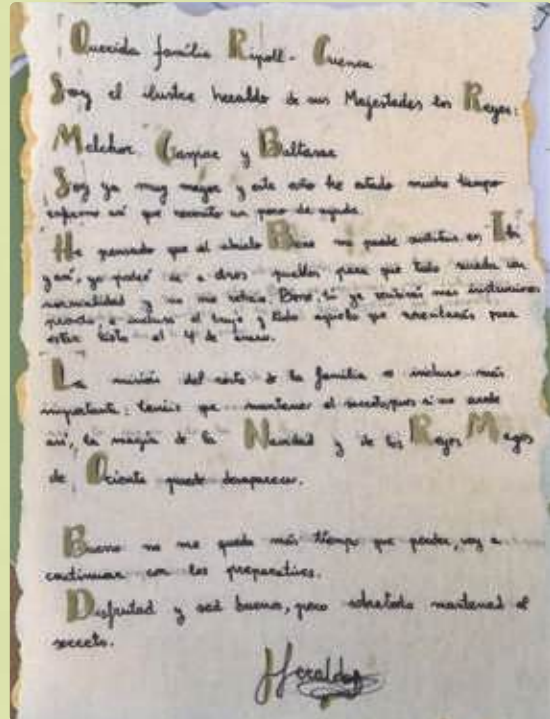 Querida família Ripoll - Cuenca
Soy el ilustre heraldo de sus Majestades los Reyes:
Melchor, Gaspar y Baltasar
Soy ya muy mayor y este año he estado mucho tiempo
enfermo así que necesito un poco de ayuda.
He pensado que el abuelo me puede sustituir en Ibi
y así, yo podré ir a otros pueblos para que todo suceda con
normalidad y no me retrase. ti ya recibirás más instrucciones
pronto e incluso el traje y todo aquello que necesitarás para
estar listo el 4 de enero.
La misión del resto de la familia es incluso más
importante: tenéis que mantener el secreto, pues si no sucede
así, la magia de la Navidad y de los Reyes Magos
de Oriente puede desaparecer.
Bueno no me queda más tiempo que perder, voy a
continuar con los preparativos.
Disfrutad y sed buenos, pero sobretodo mantened el
secreto.
Heraldo